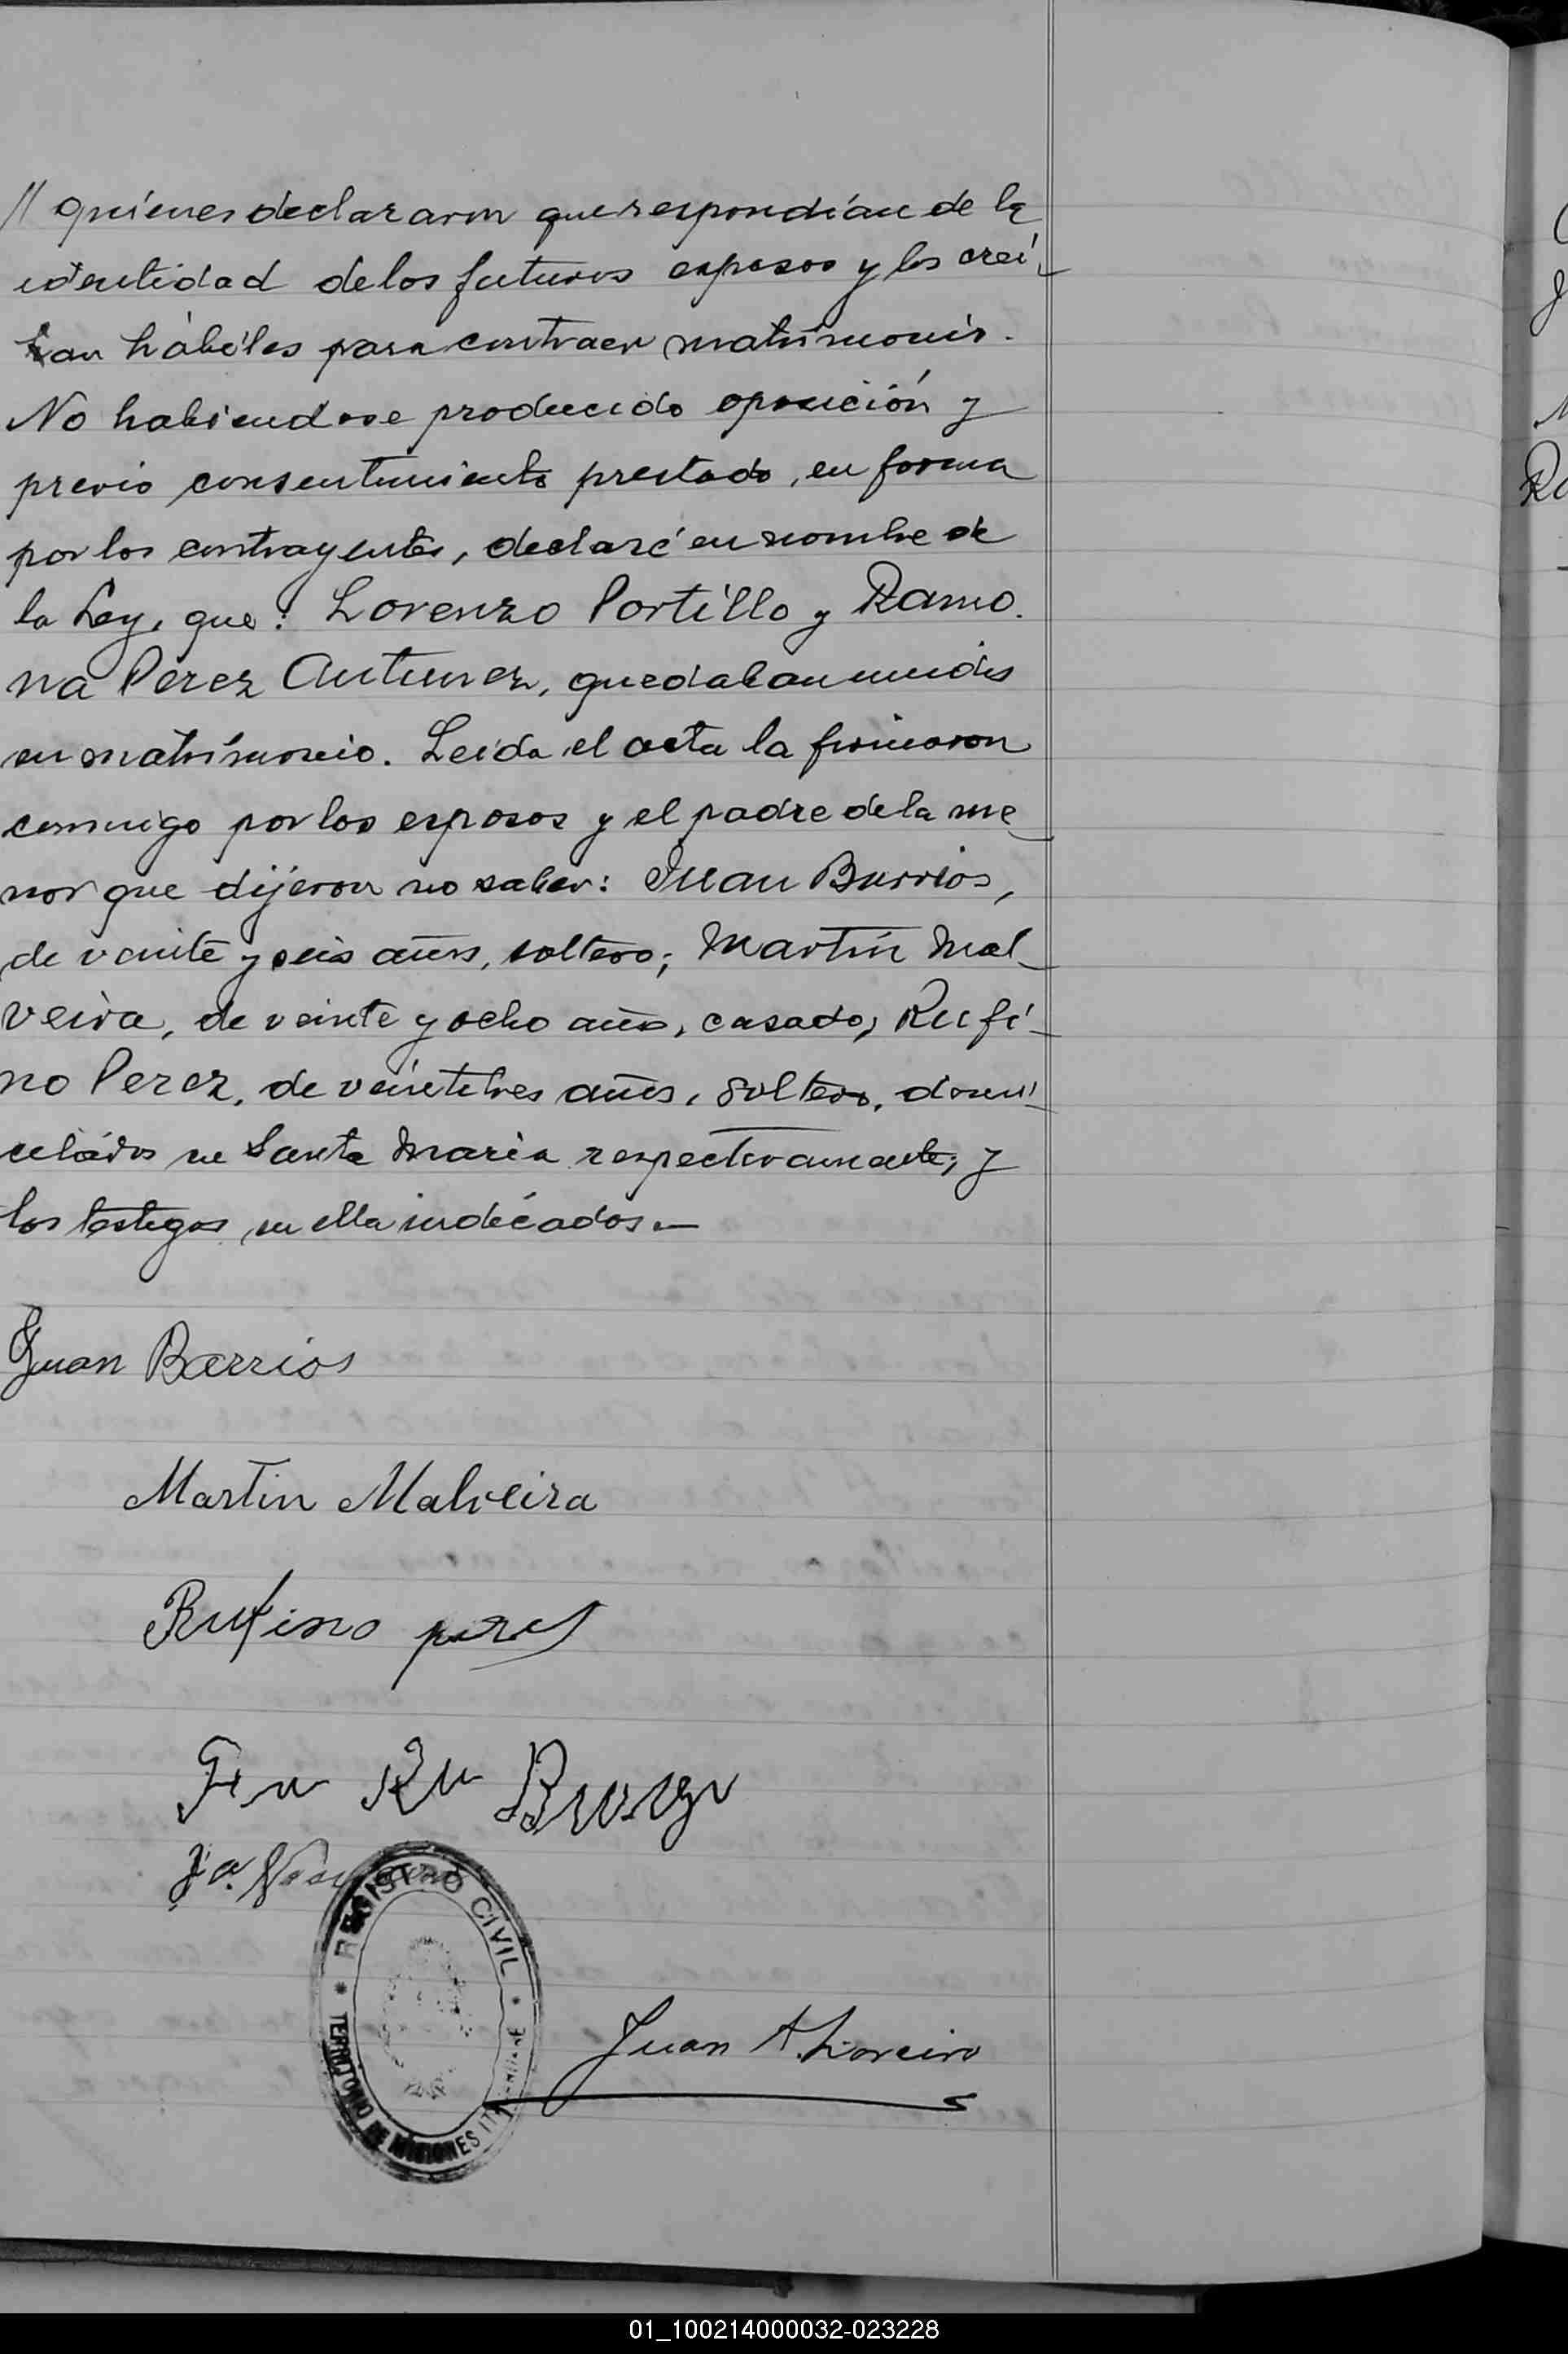 // quienes declararon que respondían de la
identidad de los futuros esposos y los creí-
an hábiles para contraer matrimonio.
No habiendose producido oposición y
previo consentimiento prestado, en forma
por los contrayentes, declaré en nombre de
la Ley, que: Lorenzo Portillo y Ramo-
na Perez Antunez, quedaban unidos
en matrimonio. Leída el acta la firmaron
conmigo por los esposos y el padre de la me-
nor que dijeron no saber: Juan Barrios,
de veinte y seis años, soltero; Martín Mal-
veira, de veinte y ocho años, casado, Rufi-
no Perez, de veintetres años, soltero, domi-
ciliados en Santa María respectivamente, y
los testigos en ella indicados.—
Juan Barrios
Martin Malveira
Rufino perez
REGISTRO CIVIL
TERRITORIO DE MISIONES
Juan A. Loreiro
01_100214000032-023228